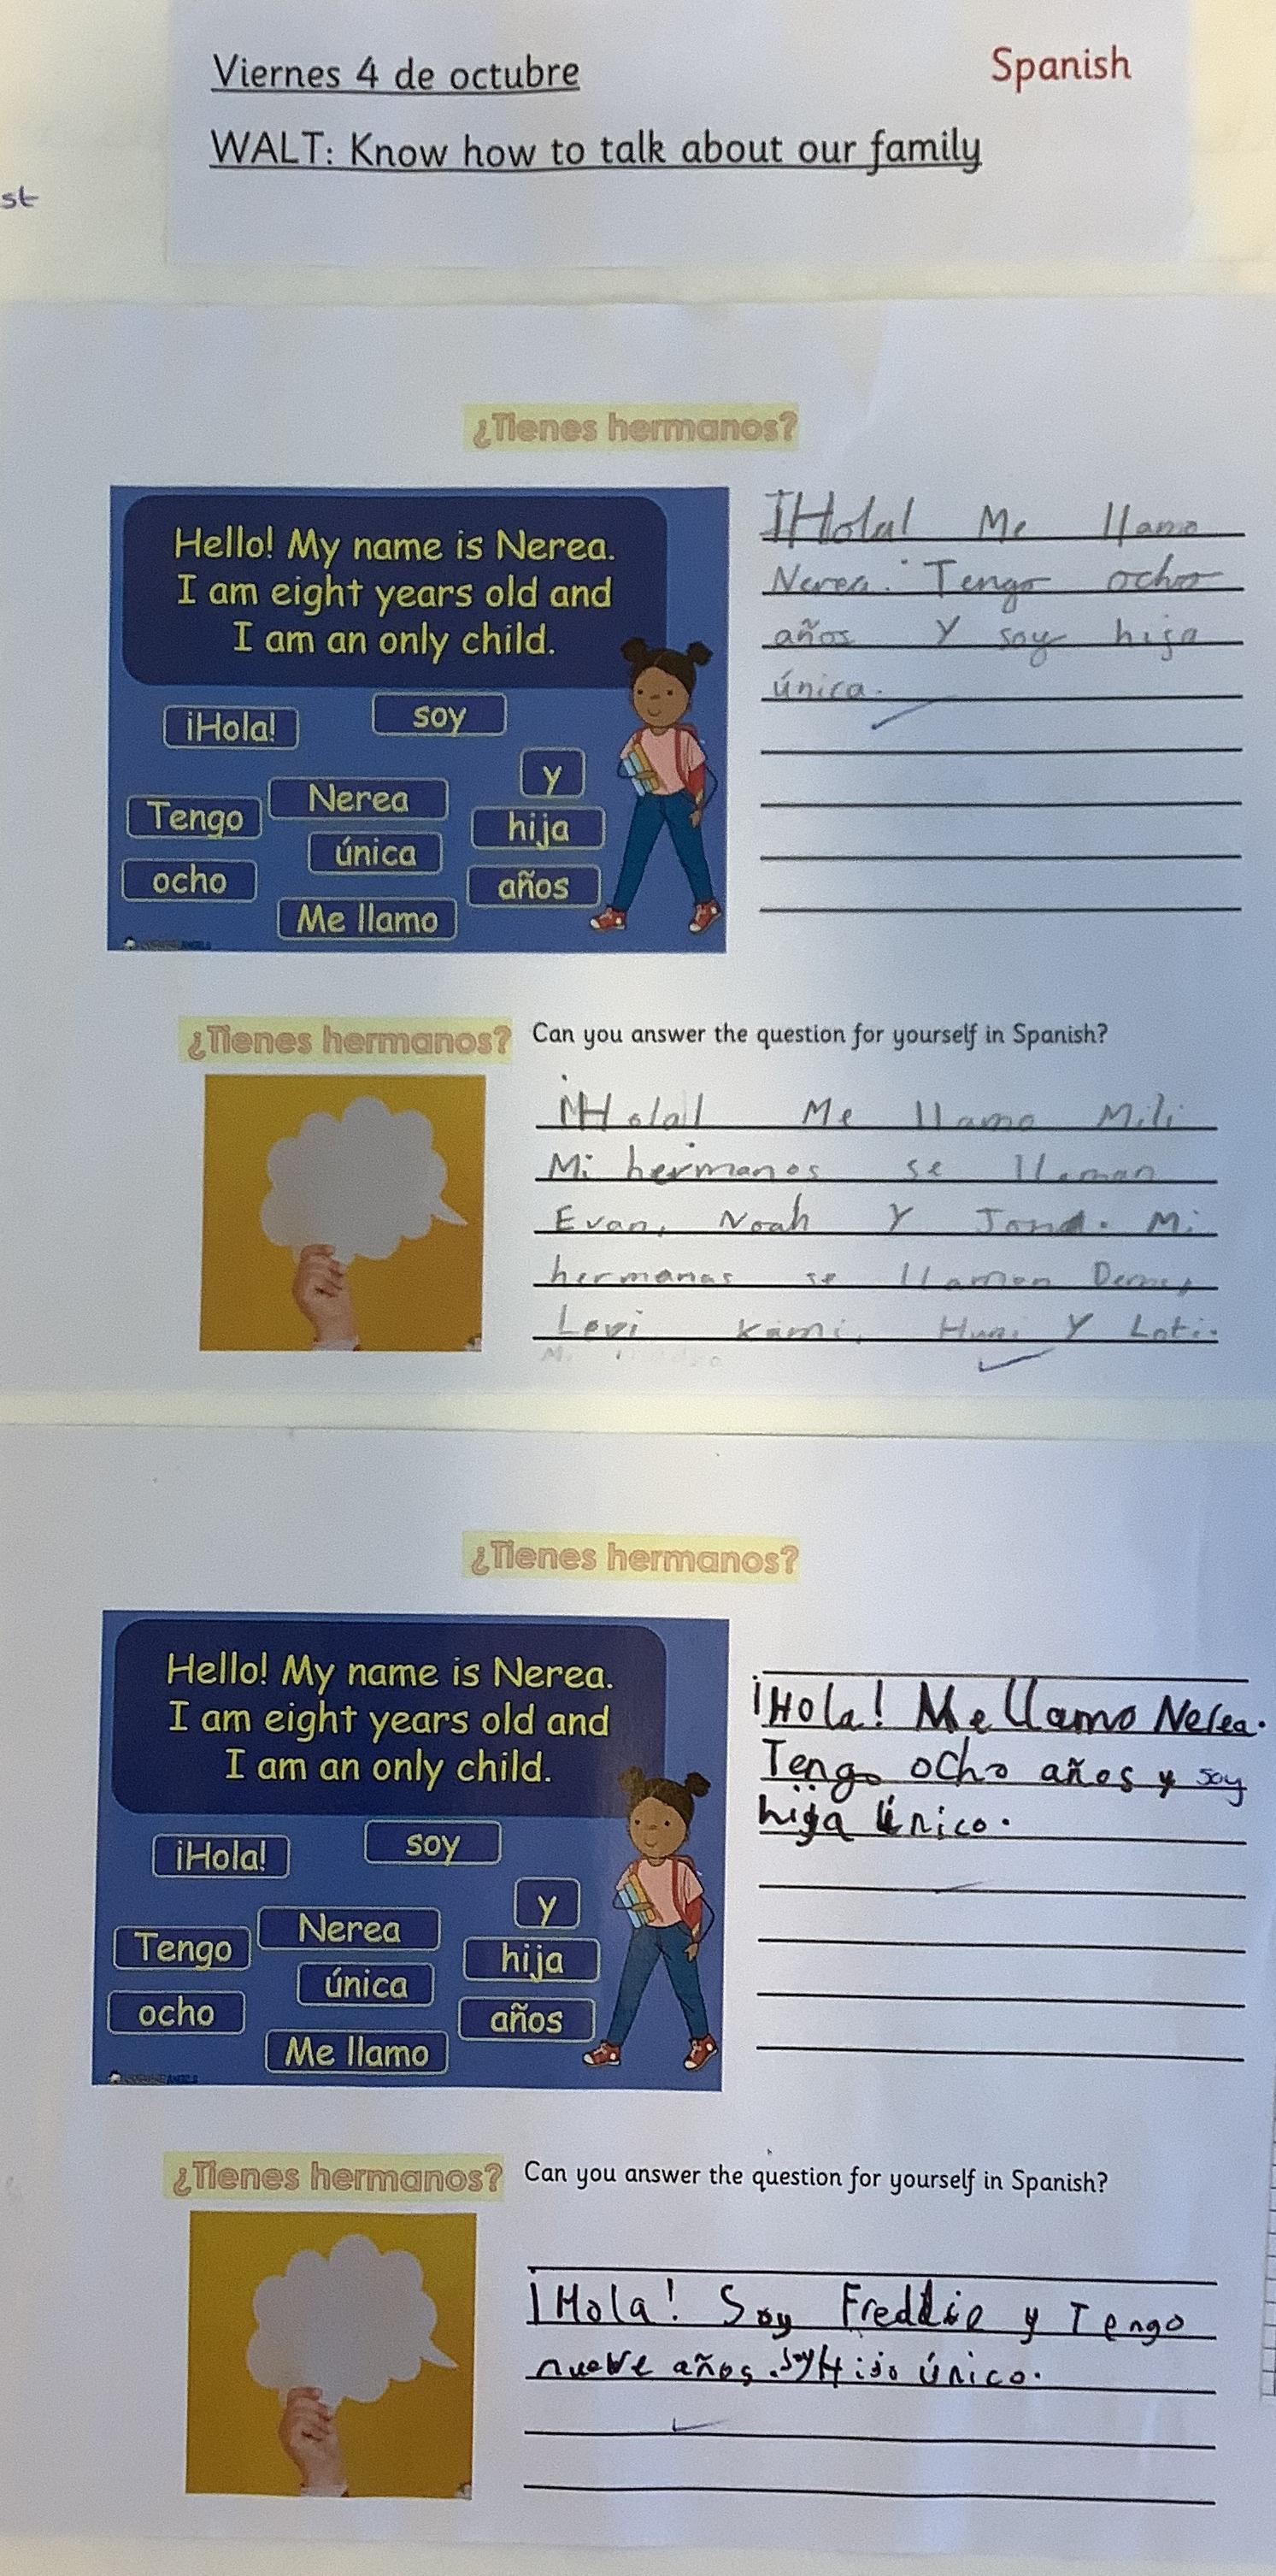 Viernes 4 de octubre
Spanish
WALT: Know how to talk about our family
st
¿Tienes hermanos?
Hello! My name is Nerea.
I am eight years old and
I am an only child.
¡Hola!
soy
y
Tengo
Nerea
hija
única
ocho
años
Me llamo
¡Hola! Me llamo
Nerea. Tengo ocho
años y soy hija
única.
¿Tienes hermanos?
Can you answer the question for yourself in Spanish?
¡Hola! Me llamo Mili
Mi hermanos se llaman
Evan, Noah y Mi
hermanas se llaman
Kami, y Loti.
¿Tienes hermanos?
Hello! My name is Nerea.
I am eight years old and
I am an only child.
¡Hola!
soy
y
Tengo
Nerea
hija
única
ocho
años
Me llamo
¡Hola! Me llamo Nerea.
Tengo ocho años y soy
hija único.
¿Tienes hermanos?
Can you answer the question for yourself in Spanish?
¡Hola! Soy Freddie y Tengo
nueve años. soy Hijo único.